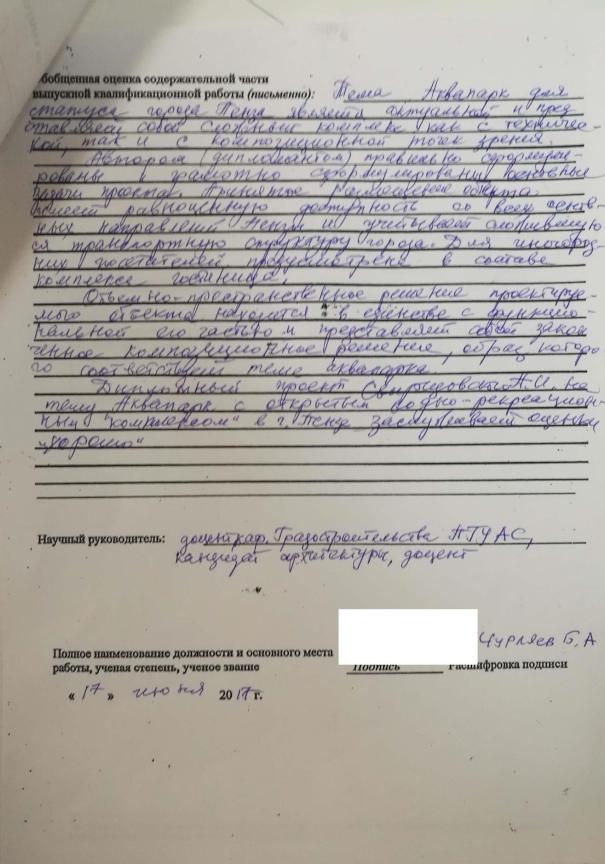 обобщенная оценка содержательной части
выпускной квалификационной работы (письменно): Тема Аквапарк для
статуса города Пенза является актуальной и пред-
ставляет собой сложный комплекс как с техничес-
кой, так и с композиционной точек зрения.
Автором (дипломантом) правильно
и грамотно сформулированы основные
задачи проекта. Принятое размещение объекта
имеет равноценную доступность со всех
направлений Пензы и учитывает сложившую-
ся транспортную структуру города. Для иногород-
них посетителей предусмотрена в составе
комплекса гостиница.
Объемно-пространственное решение проектируе-
мого объекта находится в единстве с функцио-
нальной его частью и представляет собой закон
ченное композиционное решение, образ которо-
го соответствует теме аквапарка.
Дипломный проект А.И. на
тему Аквапарк с открытым водно-рекреацион-
ным "комплексом" в г. Пенза заслуживает оценки
„хорошо“
Научный руководитель: доцент каф. Градостроительства ПГУАС,
кандидат архитектуры, доцент
Чурляев Б.А
Полное наименование должности и основного места
работы, ученая степень, ученое звание Подпись Расшифровка подписи
« 17 » июня 20 17 г.